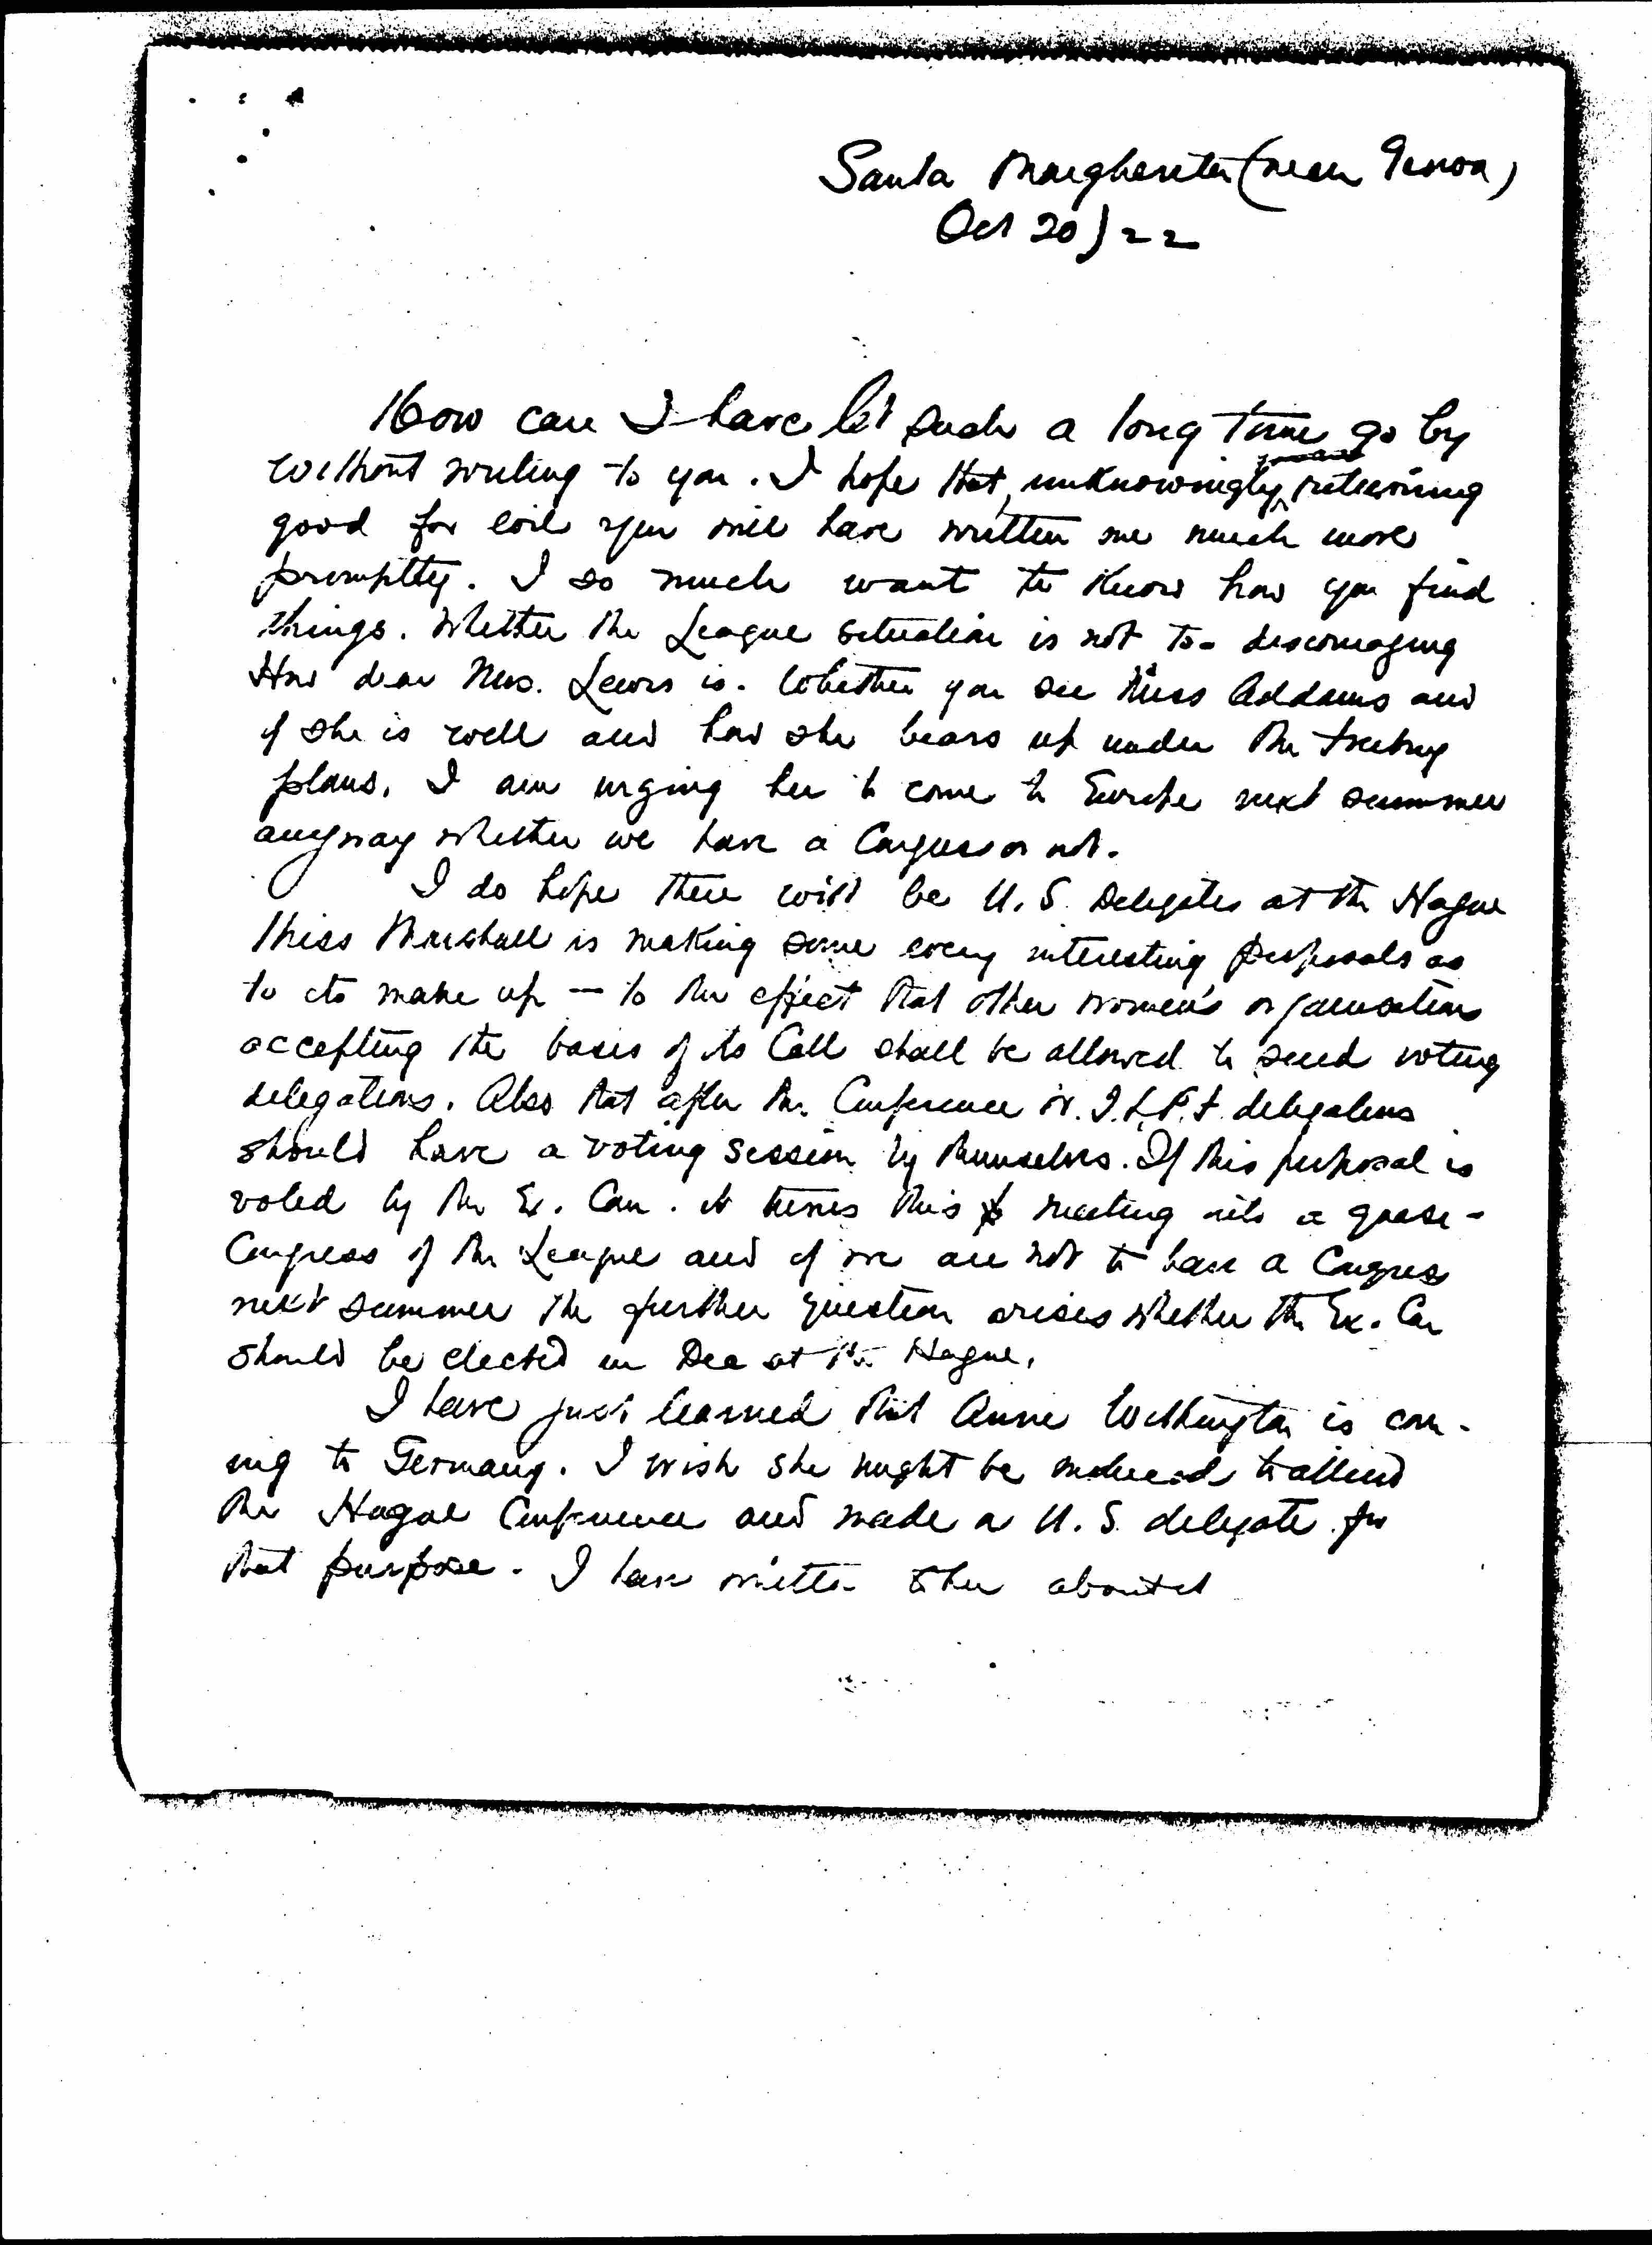 Santa Margherita (near Genoa)
Oct 20) 22
How can I have let such a long time go by
without writing to you. I hope that, unknowingly, returning
good for evil you will have written me much more
promptly. I so much want to know how you find
things. Whether the League situation is not too discouraging
How dear Mrs. Lewis is. Whether you see Miss Addams and
if she is well and how she bears up under the
plans. I am urging her to come to Europe next summer
anyway whether we have a Congress or not.
I do hope there will be U.S. Delegates at the Hague
Miss Marshall is making some very interesting proposals as
to its make up — to the effect that other women's organisations
accepting the basis of its Call shall be allowed to send voting
delegations. Also that after the Conference W.I.L.P.F. delegations
should have a voting session by themselves. If this proposal is
voted by the Ex. Com. it turns this meeting into a quasi-
Congress of the League and if we are not to have a Congress
next summer the further question arises whether the Ex. Com
should be elected in Dec at the Hague.
I have just learned that Anne Withington is com-
ing to Germany. I wish she might be induced to attend
the Hague Conference and made a U.S. delegate for
that purpose. I have written to her about it